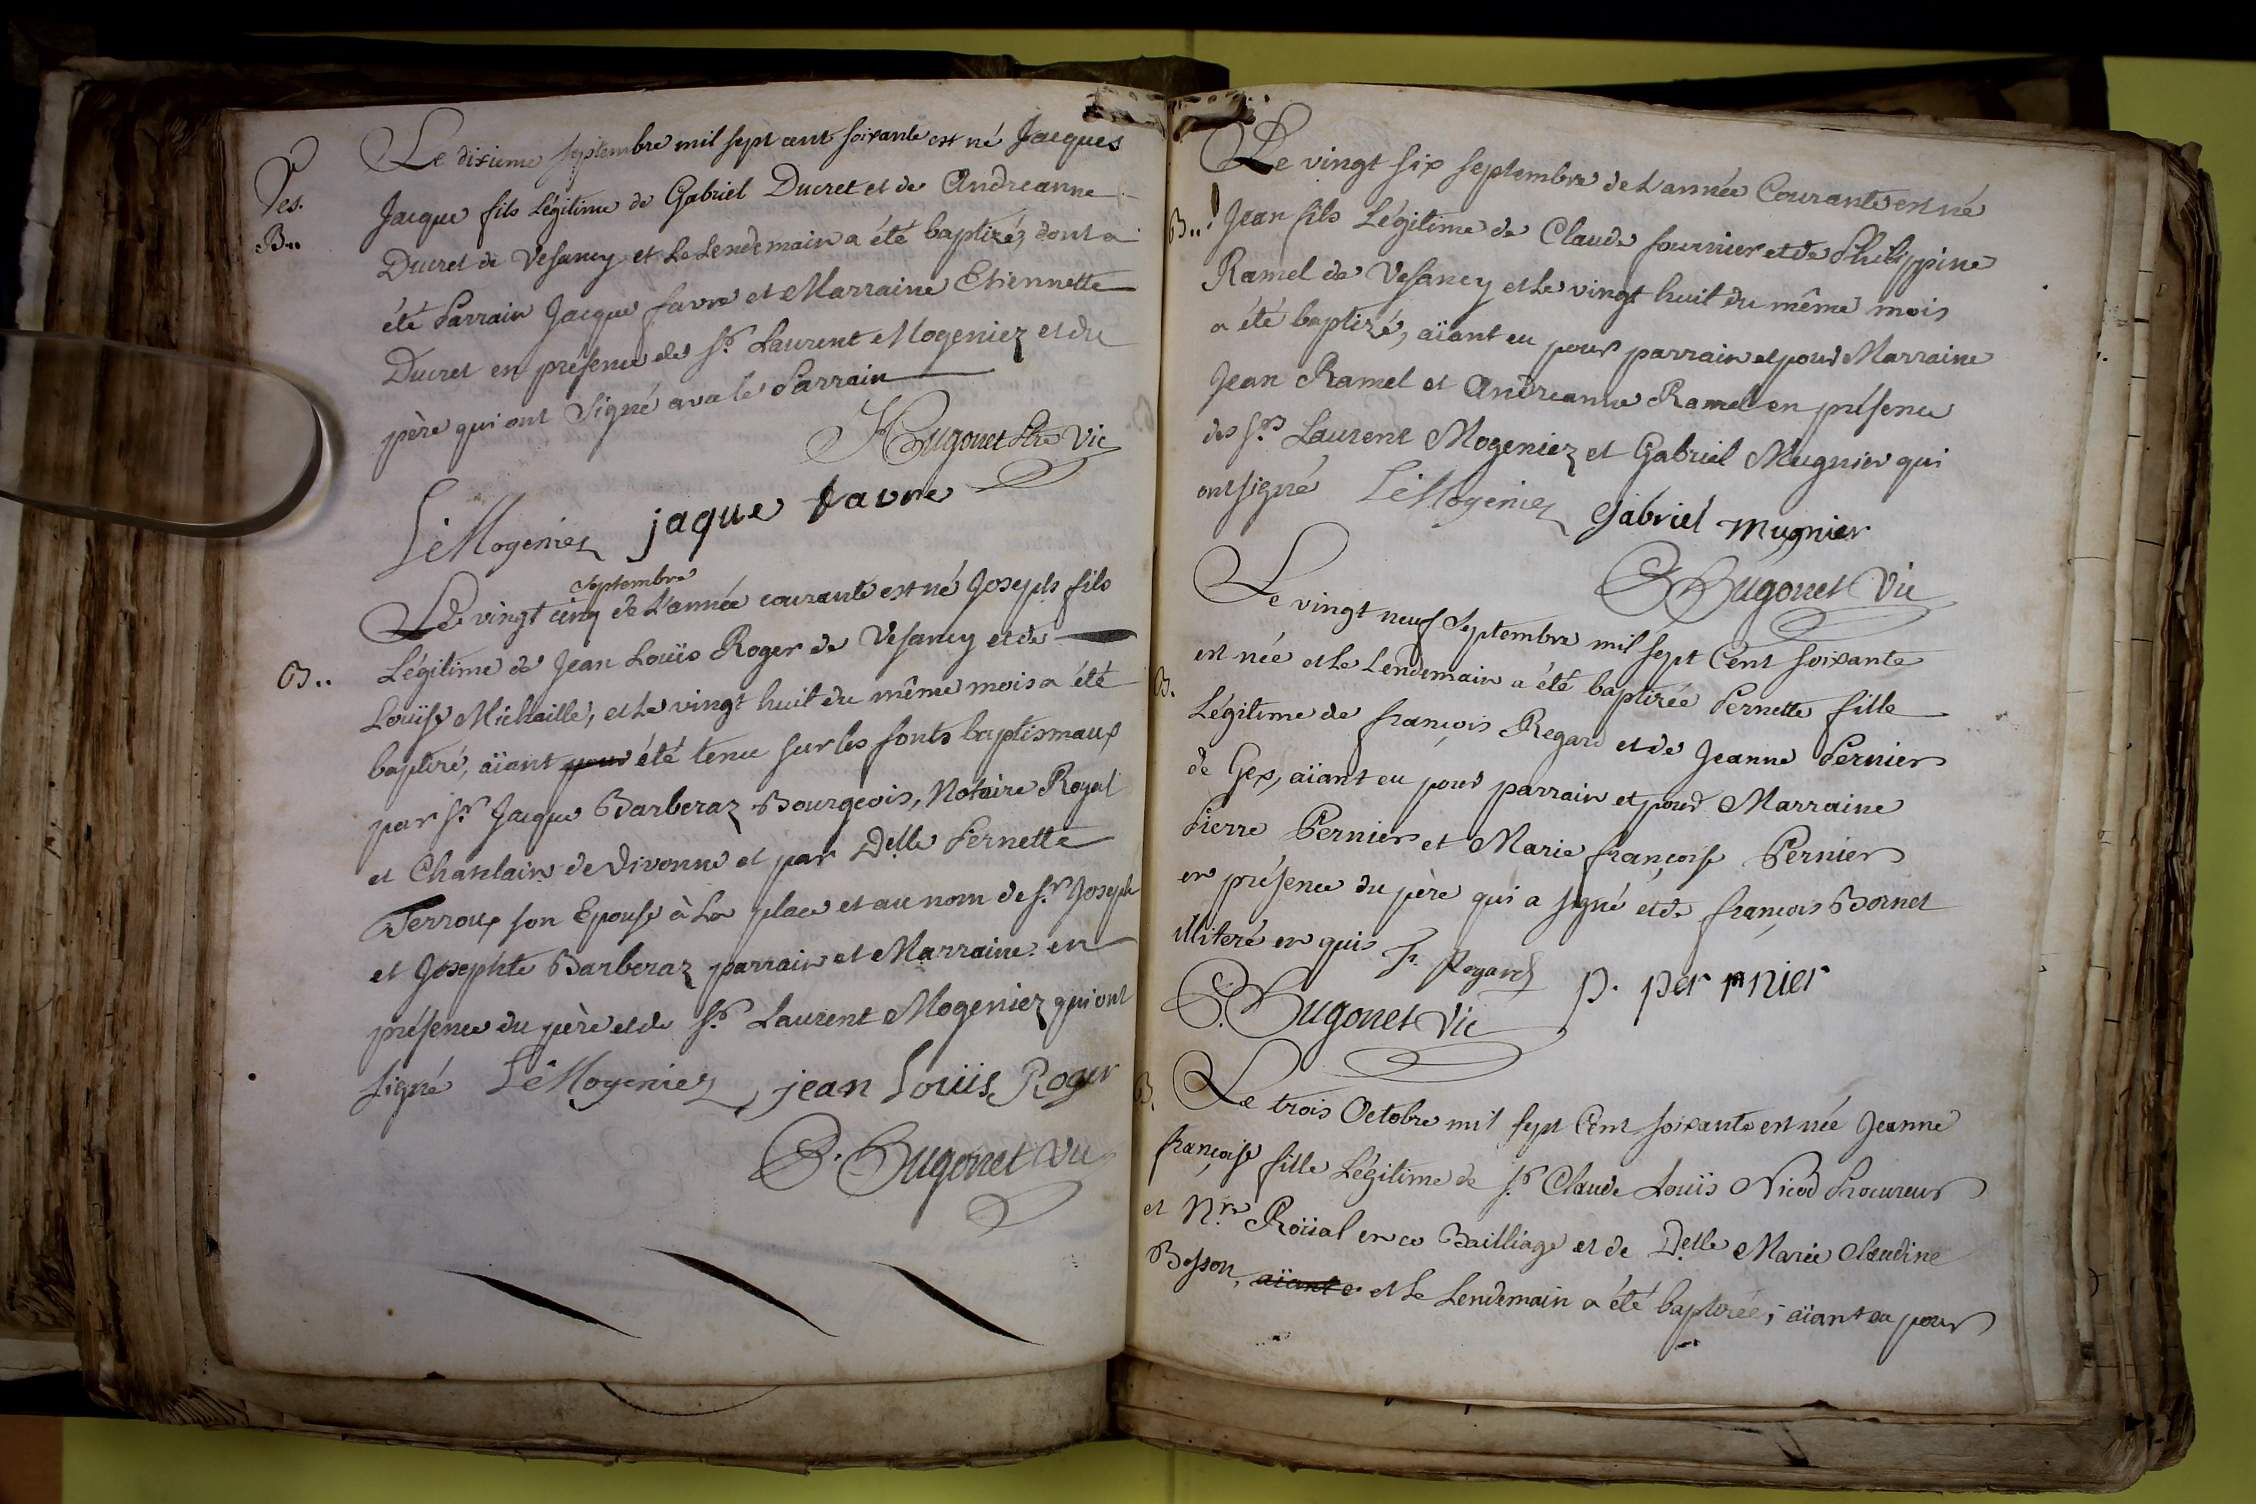 Le dixieme septembre mil sept cent soixante est né Jacques
Ves.
B..
Jacque fils Légitime de Gabriel Ducret et de Andreanne
Ducret de Vesancy et Le Lendemain a été baptizé, dont a
été Parrain Jacque favre et Marraine Etiennette
Ducret en présence de Sr. Laurent Mogeniez et du
père qui ont Signé avec le Parrain
Hugonet Ptre Vic
L Mogeniez jaque favre
septembre
Le vingt cinq de L'année courante est né Joseph fils
B..
Légitime de Jean Louïs Roger de Vesancy et de
Louïse Michaille, et Le vingt huit du même mois a été
baptizé, aïant pour été tenu sur les fonts baptismaux
par Sr. Jacque Barberaz Bourgeois, Notaire Royal
et Chatelain de Divonne et par Delle Pernette
Terroux son Epouse à La place et au nom de Sr. Joseph
et Josephte Barberaz parrain et Marraine en
présence du père et de Sr. Laurent Mogeniez qui ont
signé L Mogeniez jean Louïs Roger
B. Hugonet Vic
Le vingt six septembre de L'année Courante est né
B..
Jean fils Légitime de Claude fournier et de Philippine
Ramel de Vesancy et Le vingt huit du même mois
a été baptizé, aïant eu pour parrain et pour Marraine
Jean Ramel et Andreanne Ramel en présence
des Srs Laurent Mogeniez et Gabriel Mugnier qui
ont signé L Mogeniez Gabriel mugnier
B Hugonet Vic
Le vingt neuf Septembre mil sept Cent soixante
est née et Le Lendemain a été baptizée Pernette fille
B.
Légitime de françois Regard et de Jeanne Pernier
de Gex, aïant eu pour parrain et pour Marraine
Pierre Pernier et Marie françoise Pernier
en présence du père qui a signé et de françois Bornet
illiteré enquis fr. Regard p. pernier
B. Hugonet Vic
B.
Le trois Octobre mil sept Cent soixante est née Jeanne
françoise fille Légitime de Sr Claude Louïs Nicod Procureur
et Nre Roïial en ce Bailliage et de Delle Marie Claudine
Bosson, aïant e et Le Lendemain a été baptizée; aïant eu pour